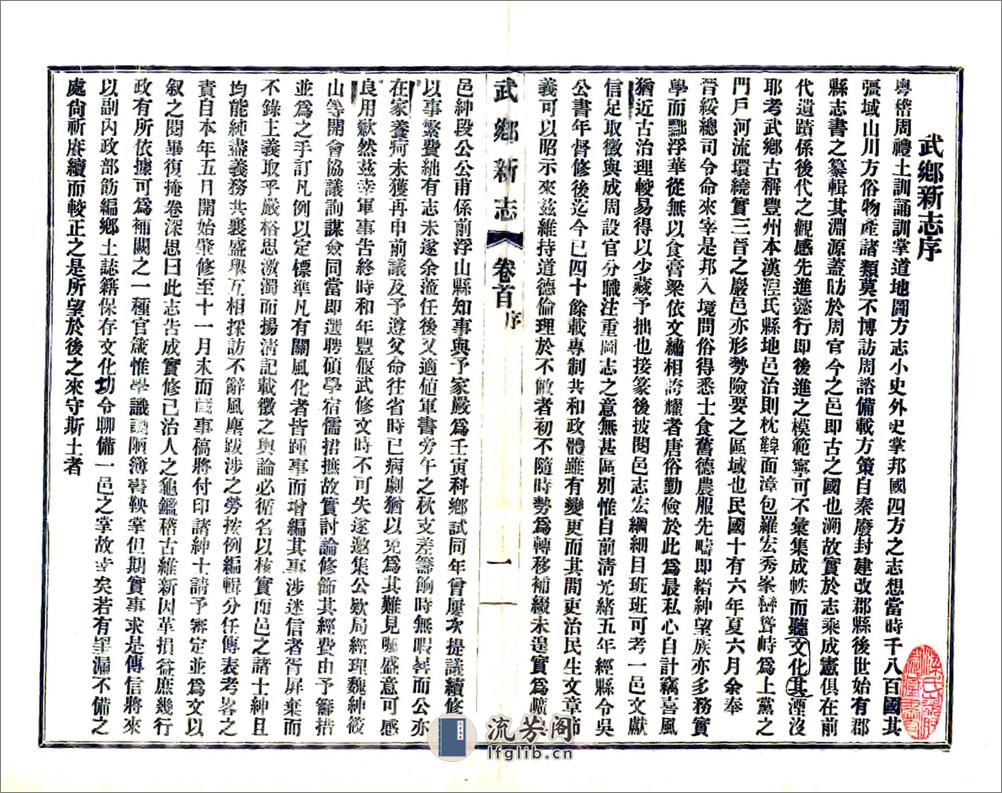 武鄉新志序
粤稽周禮土訓誦訓掌道地圖方志小史外史掌邦國四方之志想當時千八百國其
疆域山川方俗物產諸類莫不博訪周諮備載方策自秦廢封建改郡縣後世始有郡
縣志書之纂輯其淵源蓋昉於周官今之邑即古之國也溯故實於志乘成憲俱在前
代遺蹟係後代之觀感先進懿行即後進之模範寧可不彙集成帙而聽文化其湮沒
耶考武鄉古稱豐州本漢涅氏縣地邑治則枕鞞面漳包羅宏秀峯巒聳峙為上黨之
門戶河流環繞實三晉之嚴邑亦形勢險要之區域也民國十有六年夏六月余奉
晉綏總司令命來宰是邦入境問俗得悉士食舊德農服先疇即縉紳望族亦多務實
學而黜浮華從無以食膏粱依文繡相誇耀者唐俗勤儉於此為最私心自計竊喜風
猶近古治理較易得以少藏予拙也接篆後披閱邑志宏綱細目班班可考一邑文獻
信足取徵與成周設官分職注重圖志之意無甚區別惟自前清光緒五年經縣令吳
公書年督修後迄今已四十餘載專制共和政體雖有變更而其間吏治民生文章節
義可以昭示來茲維持道德倫理於不敝者初不隨時勢為轉移補綴未遑實為曠
武鄉新志
卷首
序
一
邑紳段公公甫係前浮山縣知事與予家嚴為壬寅科鄉試同年曾屢次提議續修
以事繁費絀有志未遂余蒞任後又適値軍書旁午之秋支差籌餉時無暇晷而公亦
在家養疴未獲再申前議及予遵父命往省時已病劇猶以克為其難見囑盛意可感
良用歉然茲幸軍事告終時和年豐偃武修文時不可失遂邀集公欵局經理魏紳筱
山等開會協議詢謀僉同當即選聘碩學宿儒招摭故實討論修飾其經費由予籌措
並為之手訂凡例以定標準凡有關風化者皆踵事而增編其事涉迷信者胥屏棄而
不錄主義取乎嚴格思激濁而揚清記載徵之輿論必循名以核實而邑之諸士紳且
均能純盡義務共襄盛舉互相採訪不辭風塵跋涉之勞按例編輯分任傳表考畧之
責自本年五月開始肇修至十一月末而蕆事稿將付印諸紳士請予審定並為文以
叙之閱畢復掩卷深思曰此志告成實修己治人之龜鑑稽古維新因革損益庶幾行
政有所依據可為補闕之一種官箴惟學識譾陋簿書鞅掌但期實事求是傳信將來
以副內政部飭編鄉土誌籍保存文化功令聊備一邑之掌故幸矣若有罣漏不備之
處尙祈賡續而較正之是所望於後之來守斯土者
流芳阁
lfglib.cn